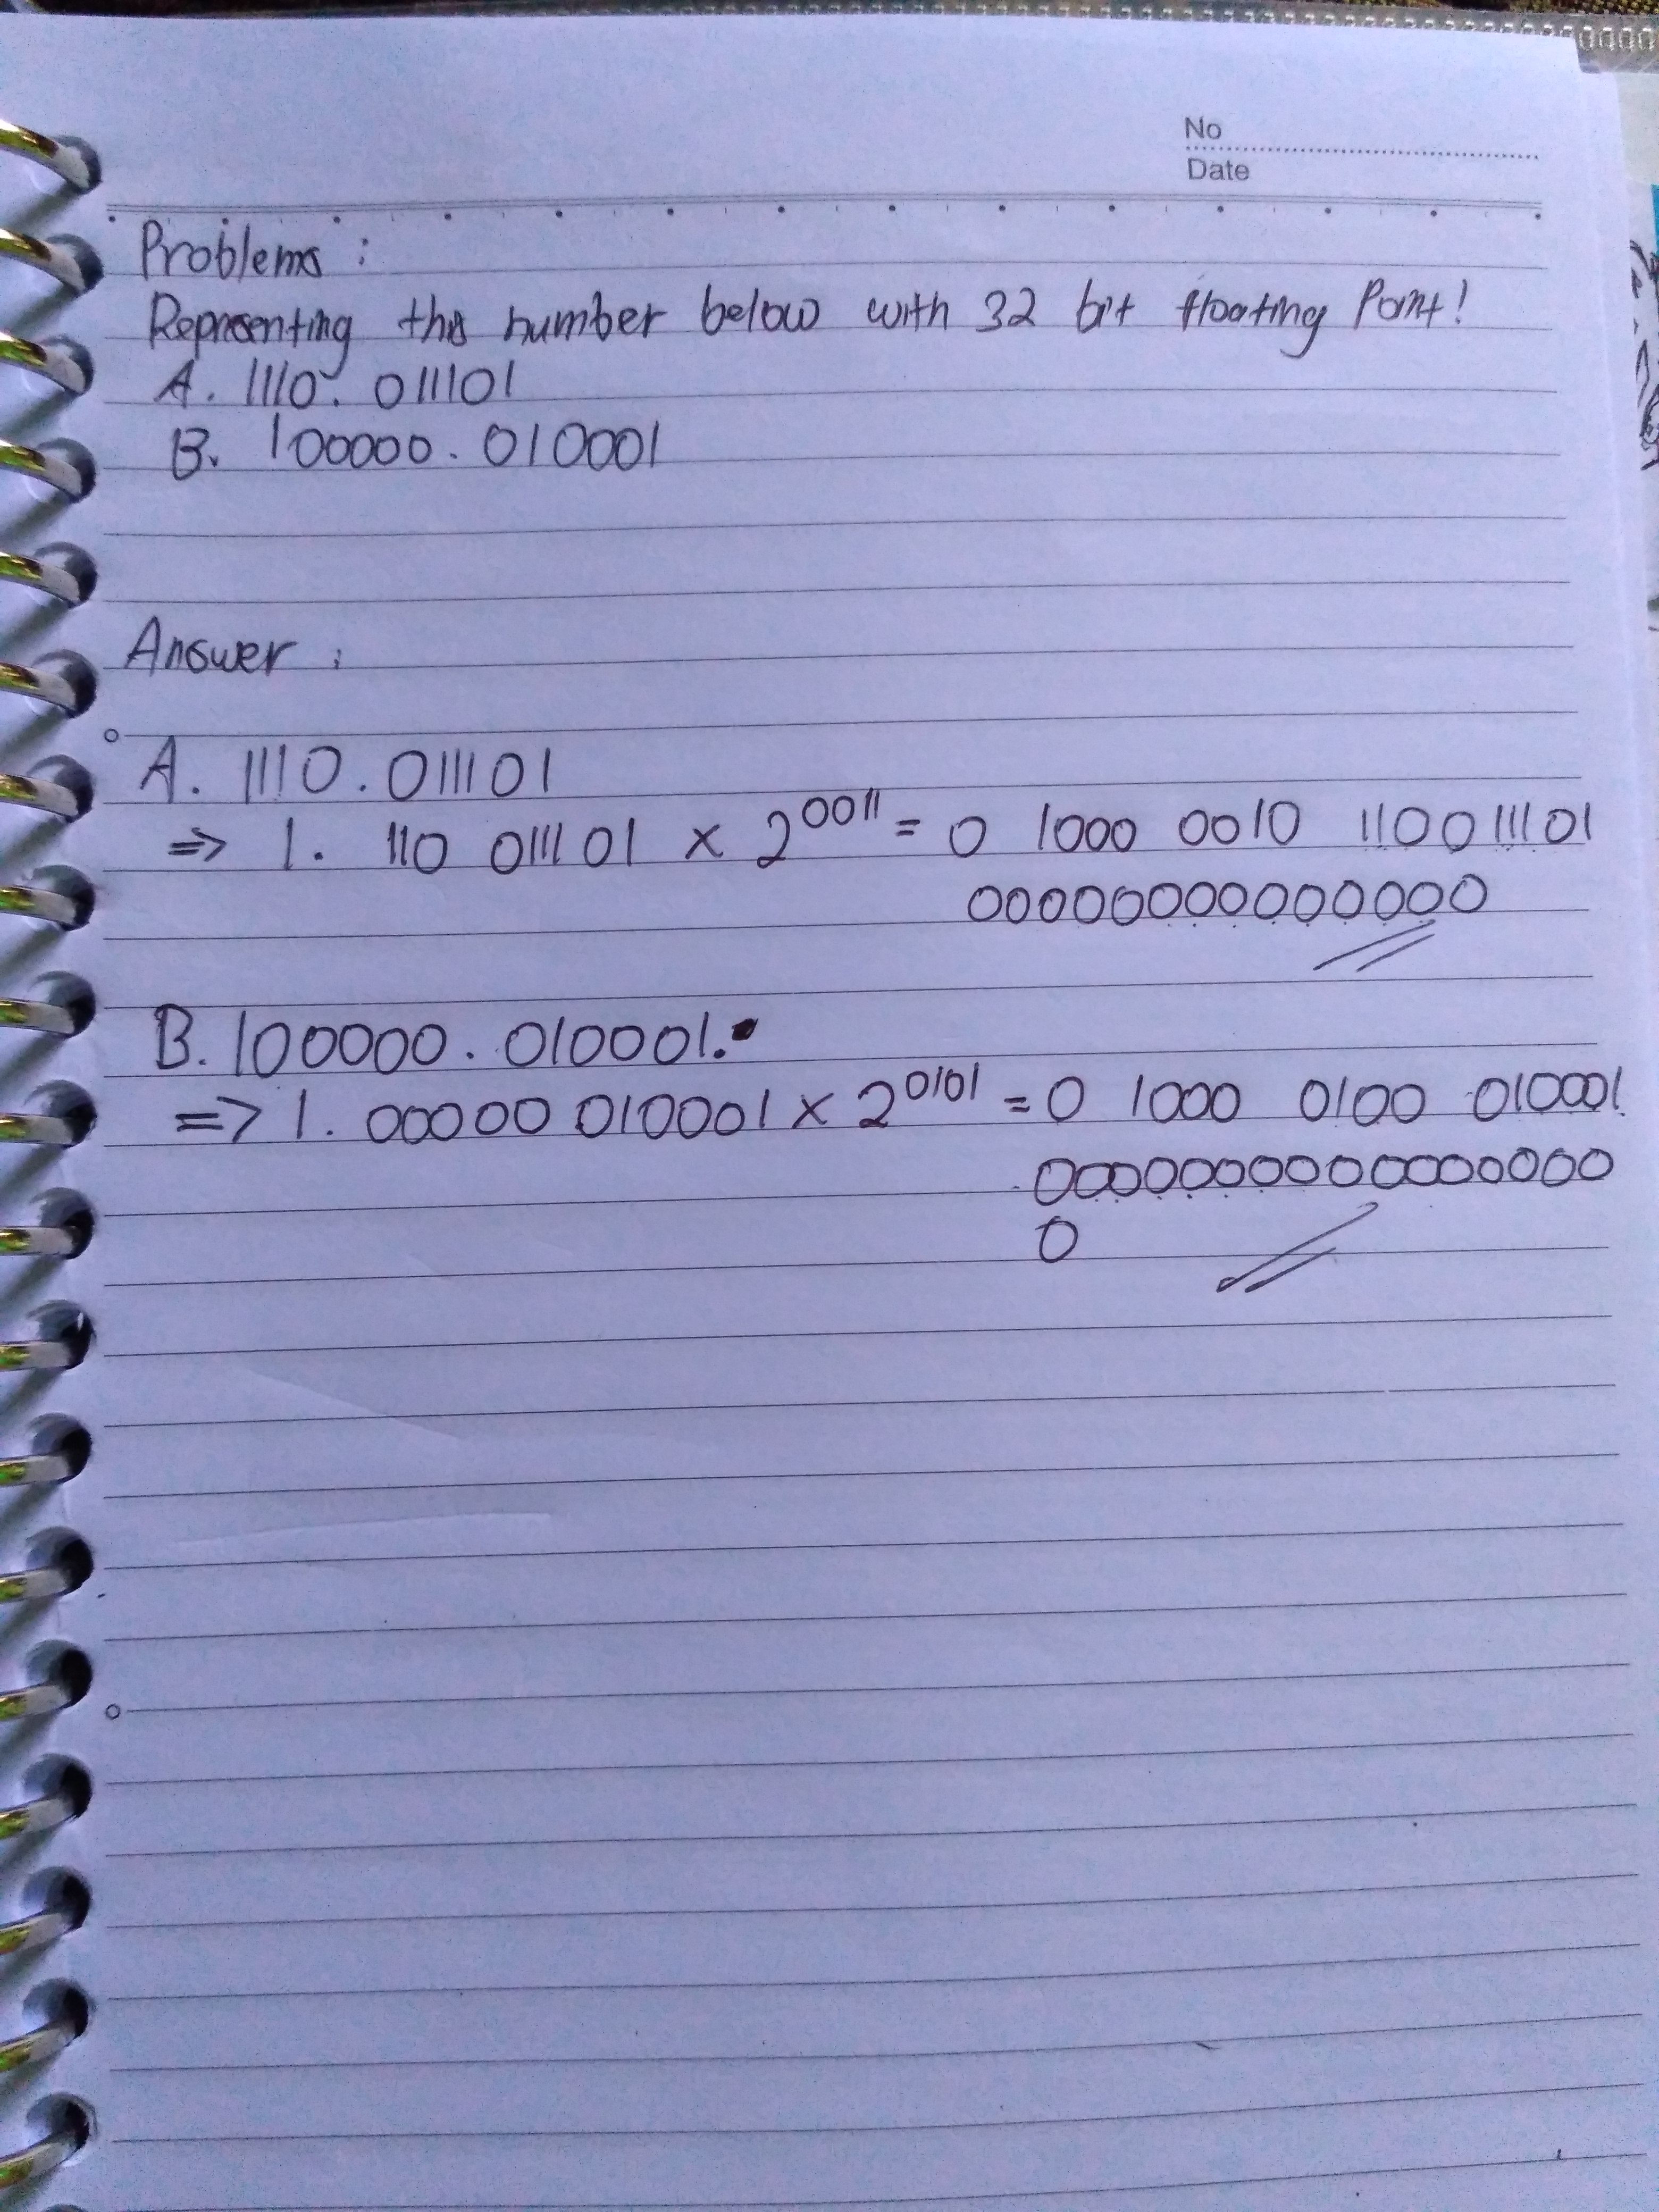 No
Date
Problems :
Representing this number below with 32 bit floating Point!
A. 1110. 011101
B. 100000. 010001
Answer :
A. 1110. 011101
=> 1. 110 011101 x 2^0011 = 0 1000 0010 110011101
00000000000000
B. 100000. 010001.
=> 1. 00000 010001 x 2^0101 = 0 1000 0100 010001
0000000000000000
0